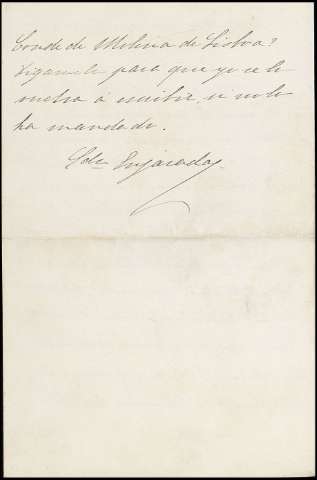 Conde de Molina de Lisboa?
Digamelo para que yo se lo
a escribir, si no lo
ha mandado.